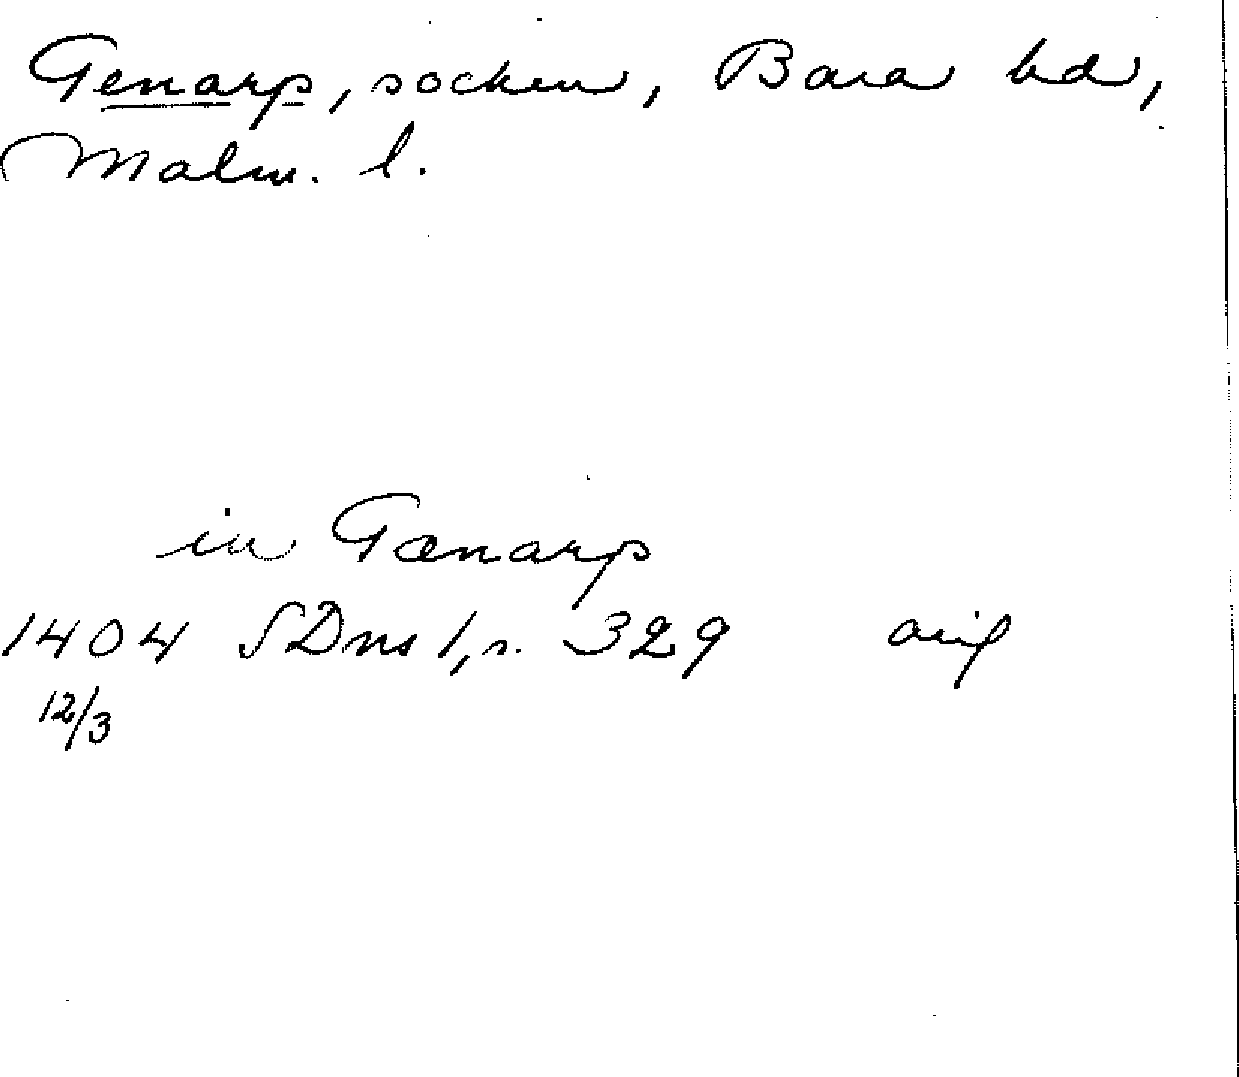 Genarp, socken, Bara hd,
Malm. l.
in Gænarp
1404 SDns 1, s. 329 orig
12/3